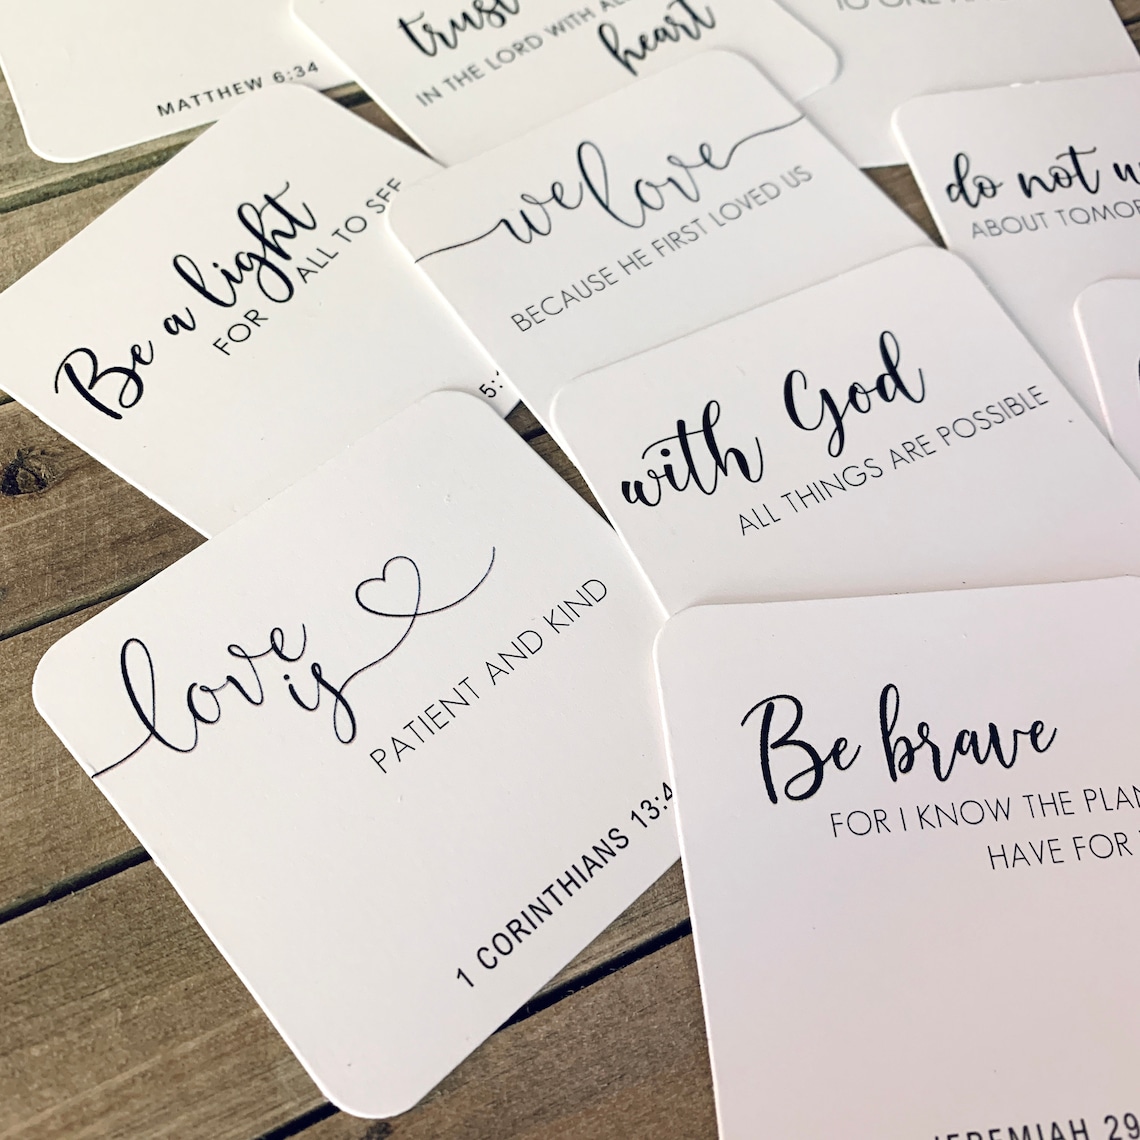 MATTHEW 6:34
trust
IN THE LORD WITH
heart
TO ONE
Be a light
FOR ALL TO SEE
5:
we love
BECAUSE HE FIRST LOVED US
do not
ABOUT
with God
ALL THINGS ARE POSSIBLE
love
is
PATIENT AND KIND
1 CORINTHIANS 13:4
Be brave
FOR I KNOW THE PLAN
HAVE FOR
JEREMIAH 29